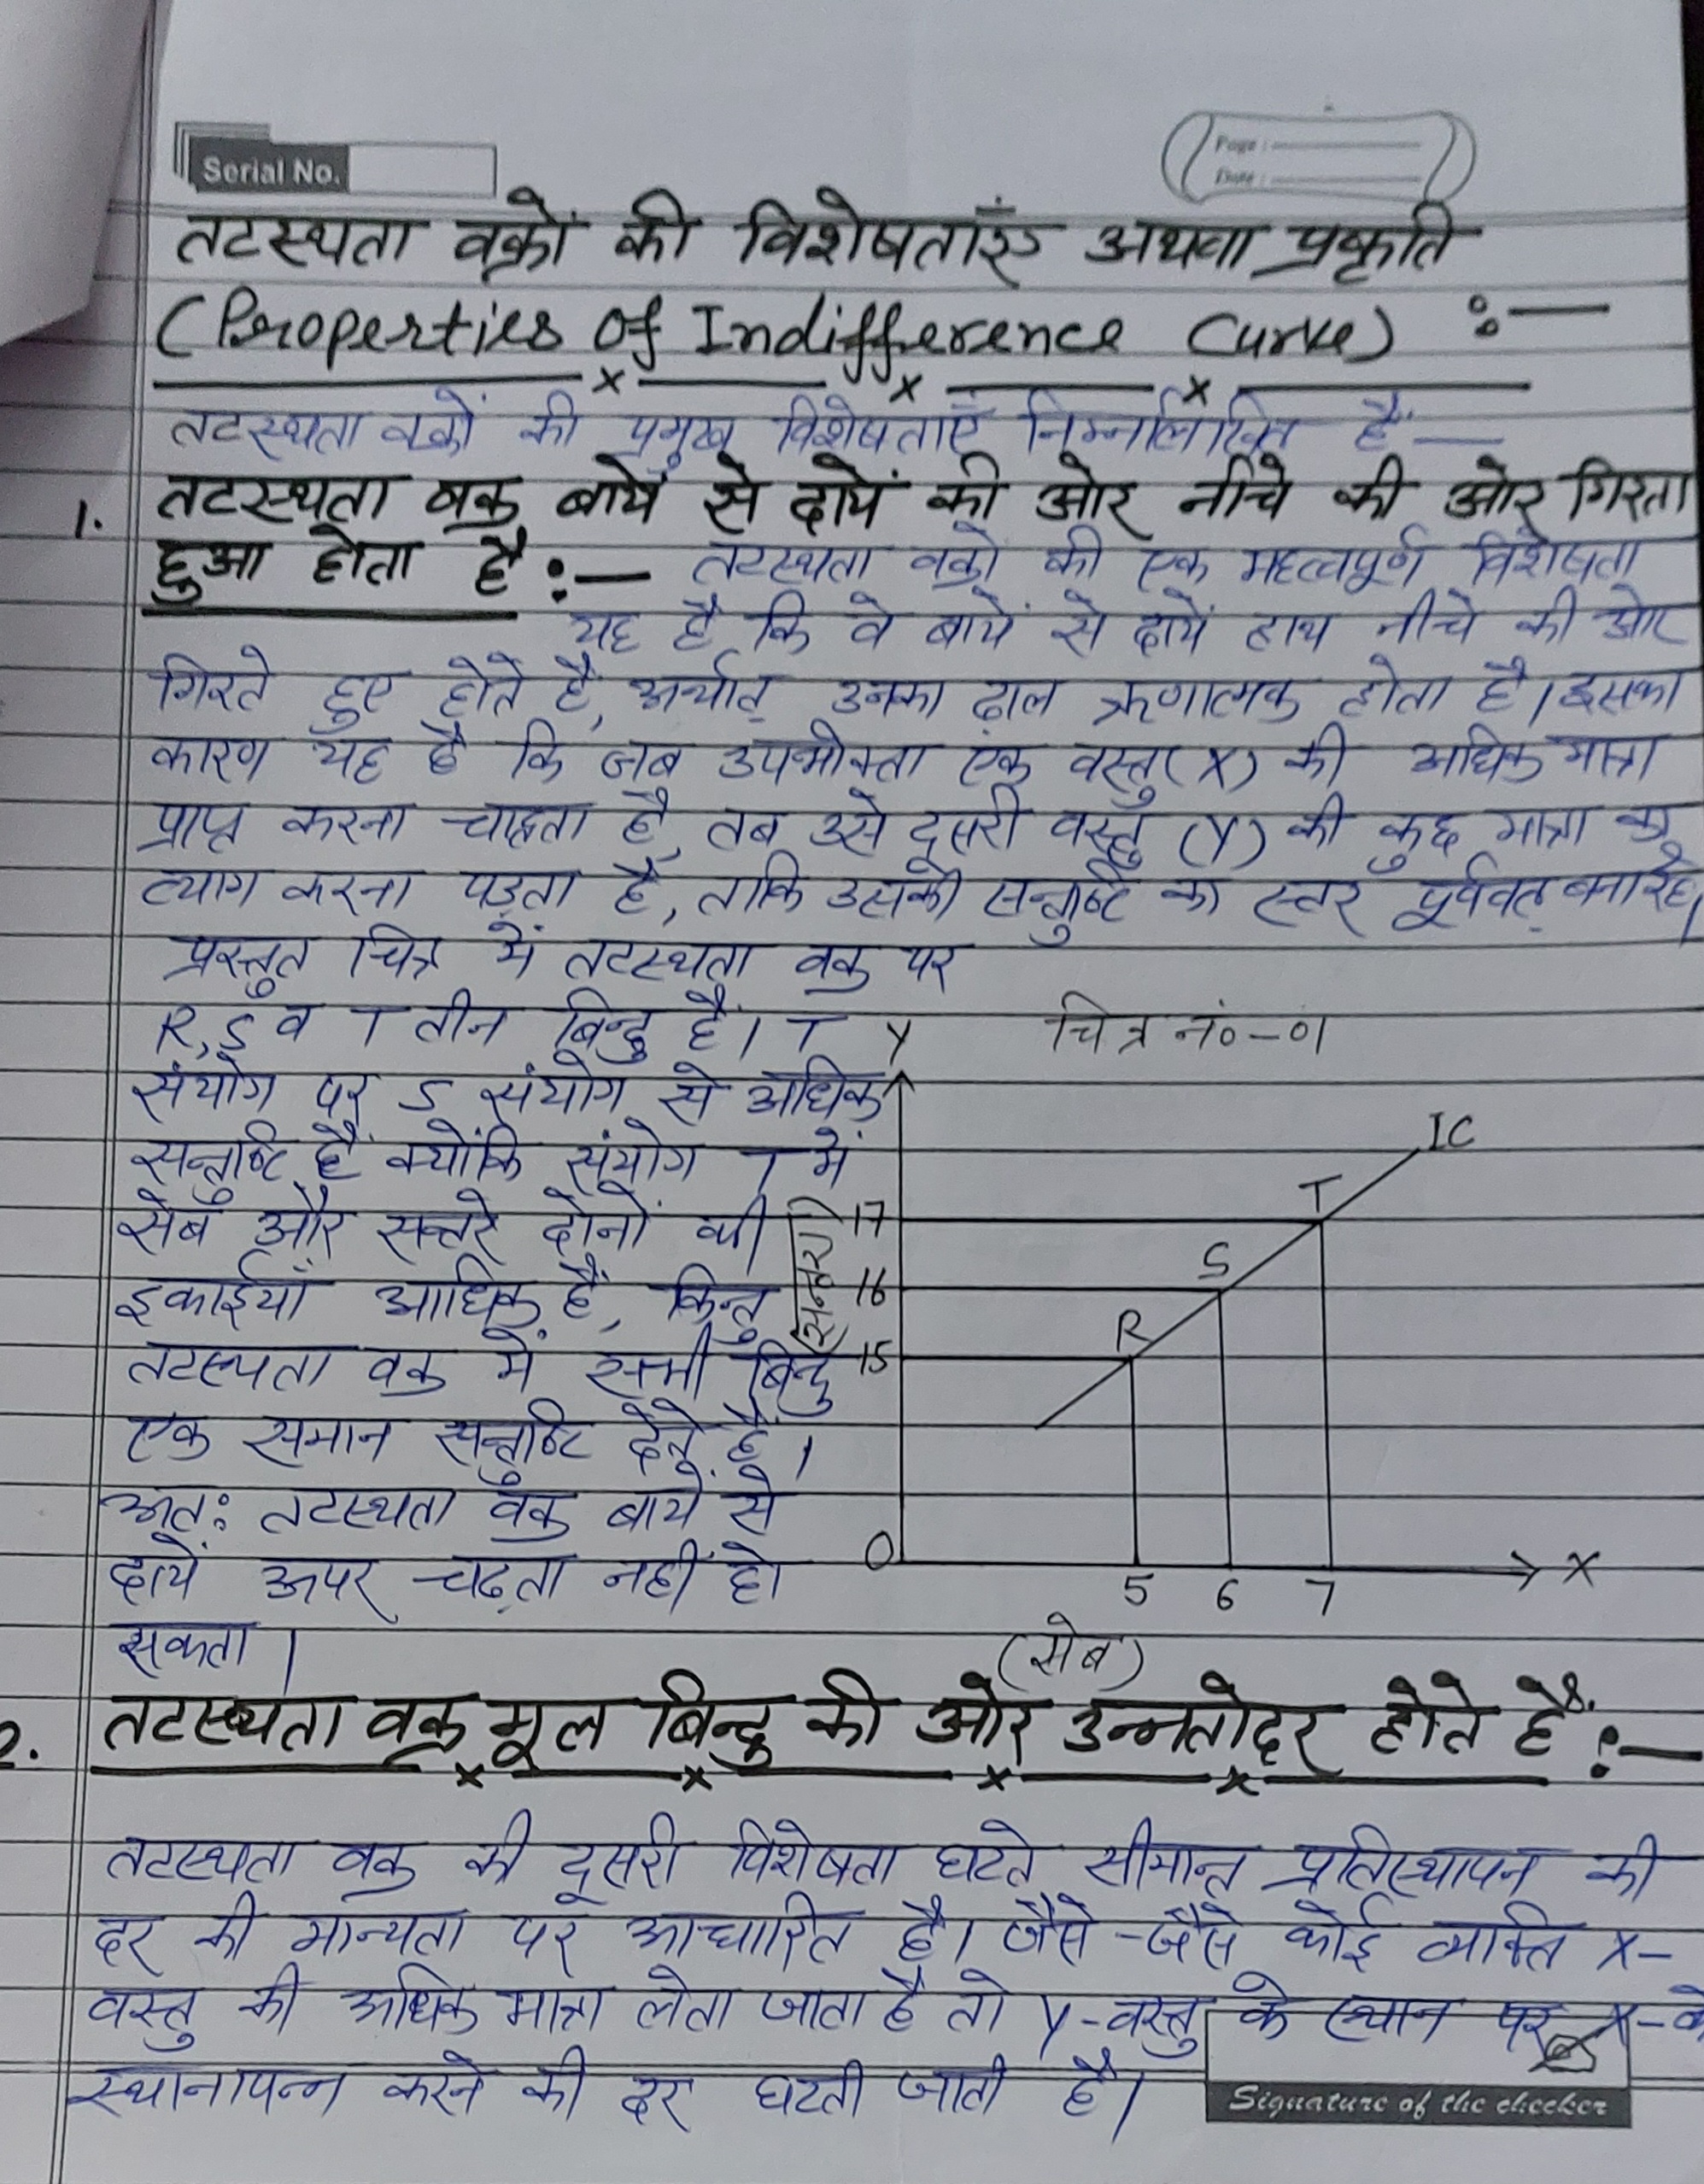 Serial No.
Page :
Date :
तटस्थता वक्रों की विशेषताएँ अथवा प्रकृति
(Properties of Indifference Curve) :—
तटस्थता वक्रों की प्रमुख विशेषताएँ निम्नलिखित हैं—
1. तटस्थता वक्र बायें से दायें की ओर नीचे की ओर गिरता
हुआ होता है :— तटस्थता वक्रों की एक महत्वपूर्ण विशेषता
यह है कि वे बायें से दायें हाथ नीचे की ओर
गिरते हुए होते हैं, अर्थात् उनका ढाल ऋणात्मक होता है। इसका
कारण यह है कि जब उपभोक्ता एक वस्तु (X) की अधिक मात्रा
प्राप्त करना चाहता है, तब उसे दूसरी वस्तु (Y) की कुछ मात्रा का
त्याग करना पड़ता है, ताकि उसकी सन्तुष्टि का स्तर पूर्ववत् बना रहे।
प्रस्तुत चित्र में तटस्थता वक्र पर
R, S व T तीन बिन्दु हैं। T
संयोग पर S संयोग से अधिक
सन्तुष्टि है क्योंकि संयोग T में
सेब और सन्तरे दोनों की
इकाईयाँ अधिक हैं, किन्तु
तटस्थता वक्र में सभी बिन्दु
एक समान सन्तुष्टि देते हैं।
अतः तटस्थता वक्र बायें से
दायें ऊपर चढ़ता नहीं हो
सकता।
चित्र नं०-01
Y
IC
T
17
S
16
R
15
(सन्तरा)
O
X
5 6 7
(सेब)
2. तटस्थता वक्र मूल बिन्दु की ओर उन्नतोदर होते हैं :—
तटस्थता वक्र की दूसरी विशेषता घटते सीमान्त प्रतिस्थापन की
दर की मान्यता पर आधारित है। जैसे-जैसे कोई व्यक्ति X-
वस्तु की अधिक मात्रा लेता जाता है तो Y-वस्तु के स्थान पर X-के
स्थानापन्न करने की दर घटती जाती है।
Signature of the checker